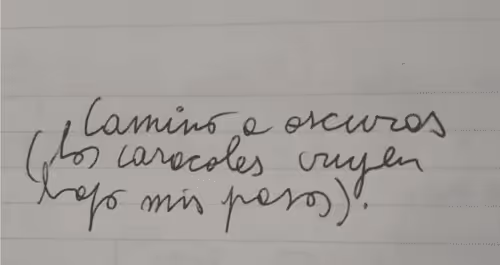 Camino a oscuras
(los caracoles crujen
bajo mis pasos).